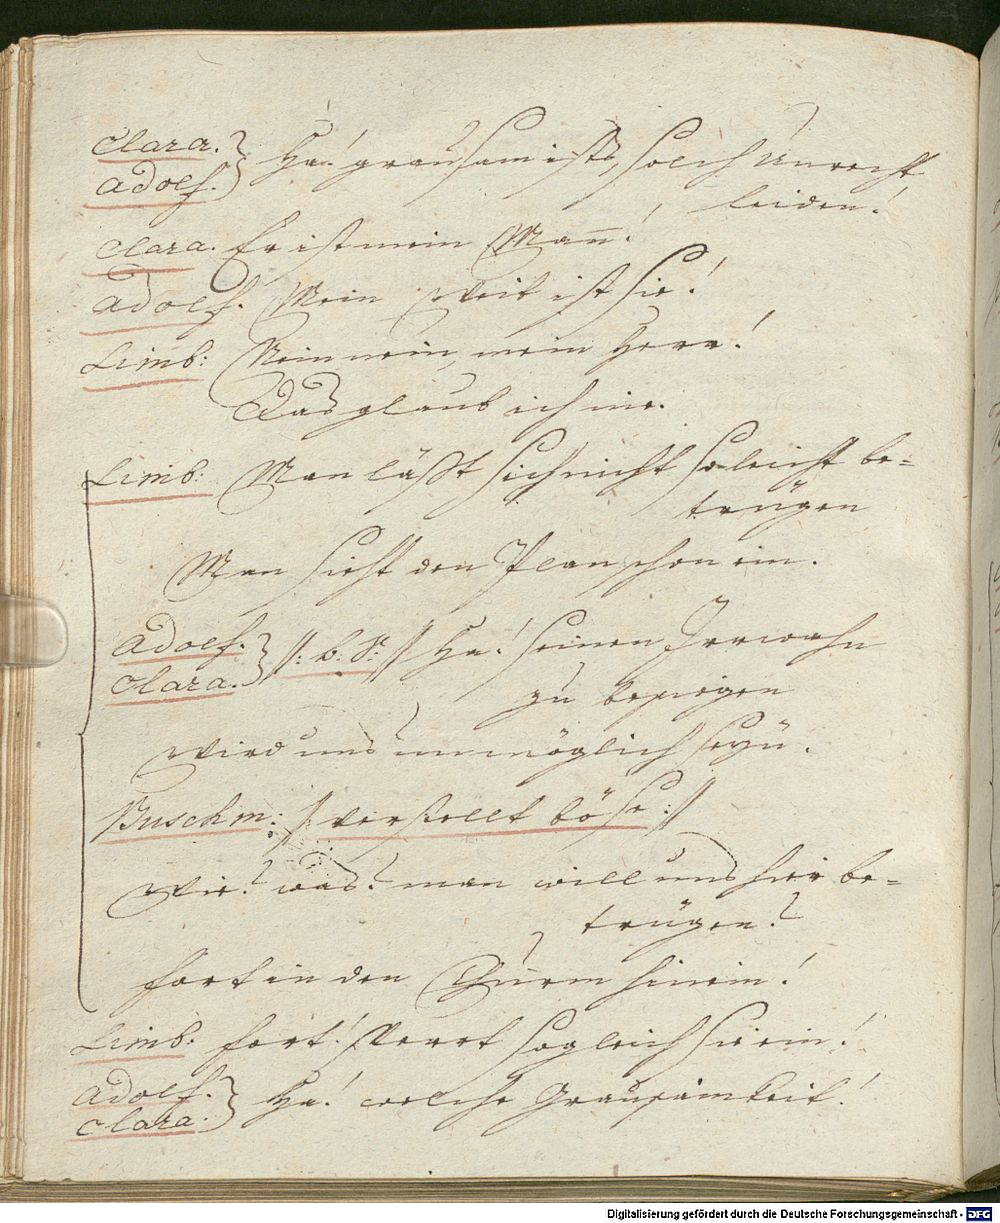 Clara. } Ha! grausam ists, solch Unrecht
Adolf. }
leiden!
Clara. Er ist mein Man̄!
Adolf. Mein Weib ist sie!
Limb: Nein nein, mein Herr!
Das glaub ich nie.
Limb: Man läßt sich nicht so leicht be=
trügen
Man sieht den Plan schon ein.
Adolf. } //: b. S: // Ha! seinen Irrwahn
Clara. }
zu besiegen
Wird uns unmöglich seyn.
Buschm: // verstellt böse ://
Wie? was? man will uns hier be=
trügen?
Fort in den Thurm hinein!
Limb: Fort! sperrt sogleich sie ein!
Adolf. } Ha! welche Grausamkeit!
Clara. }
Digitalisierung gefördert durch die Deutsche Forschungsgemeinschaft - DFG